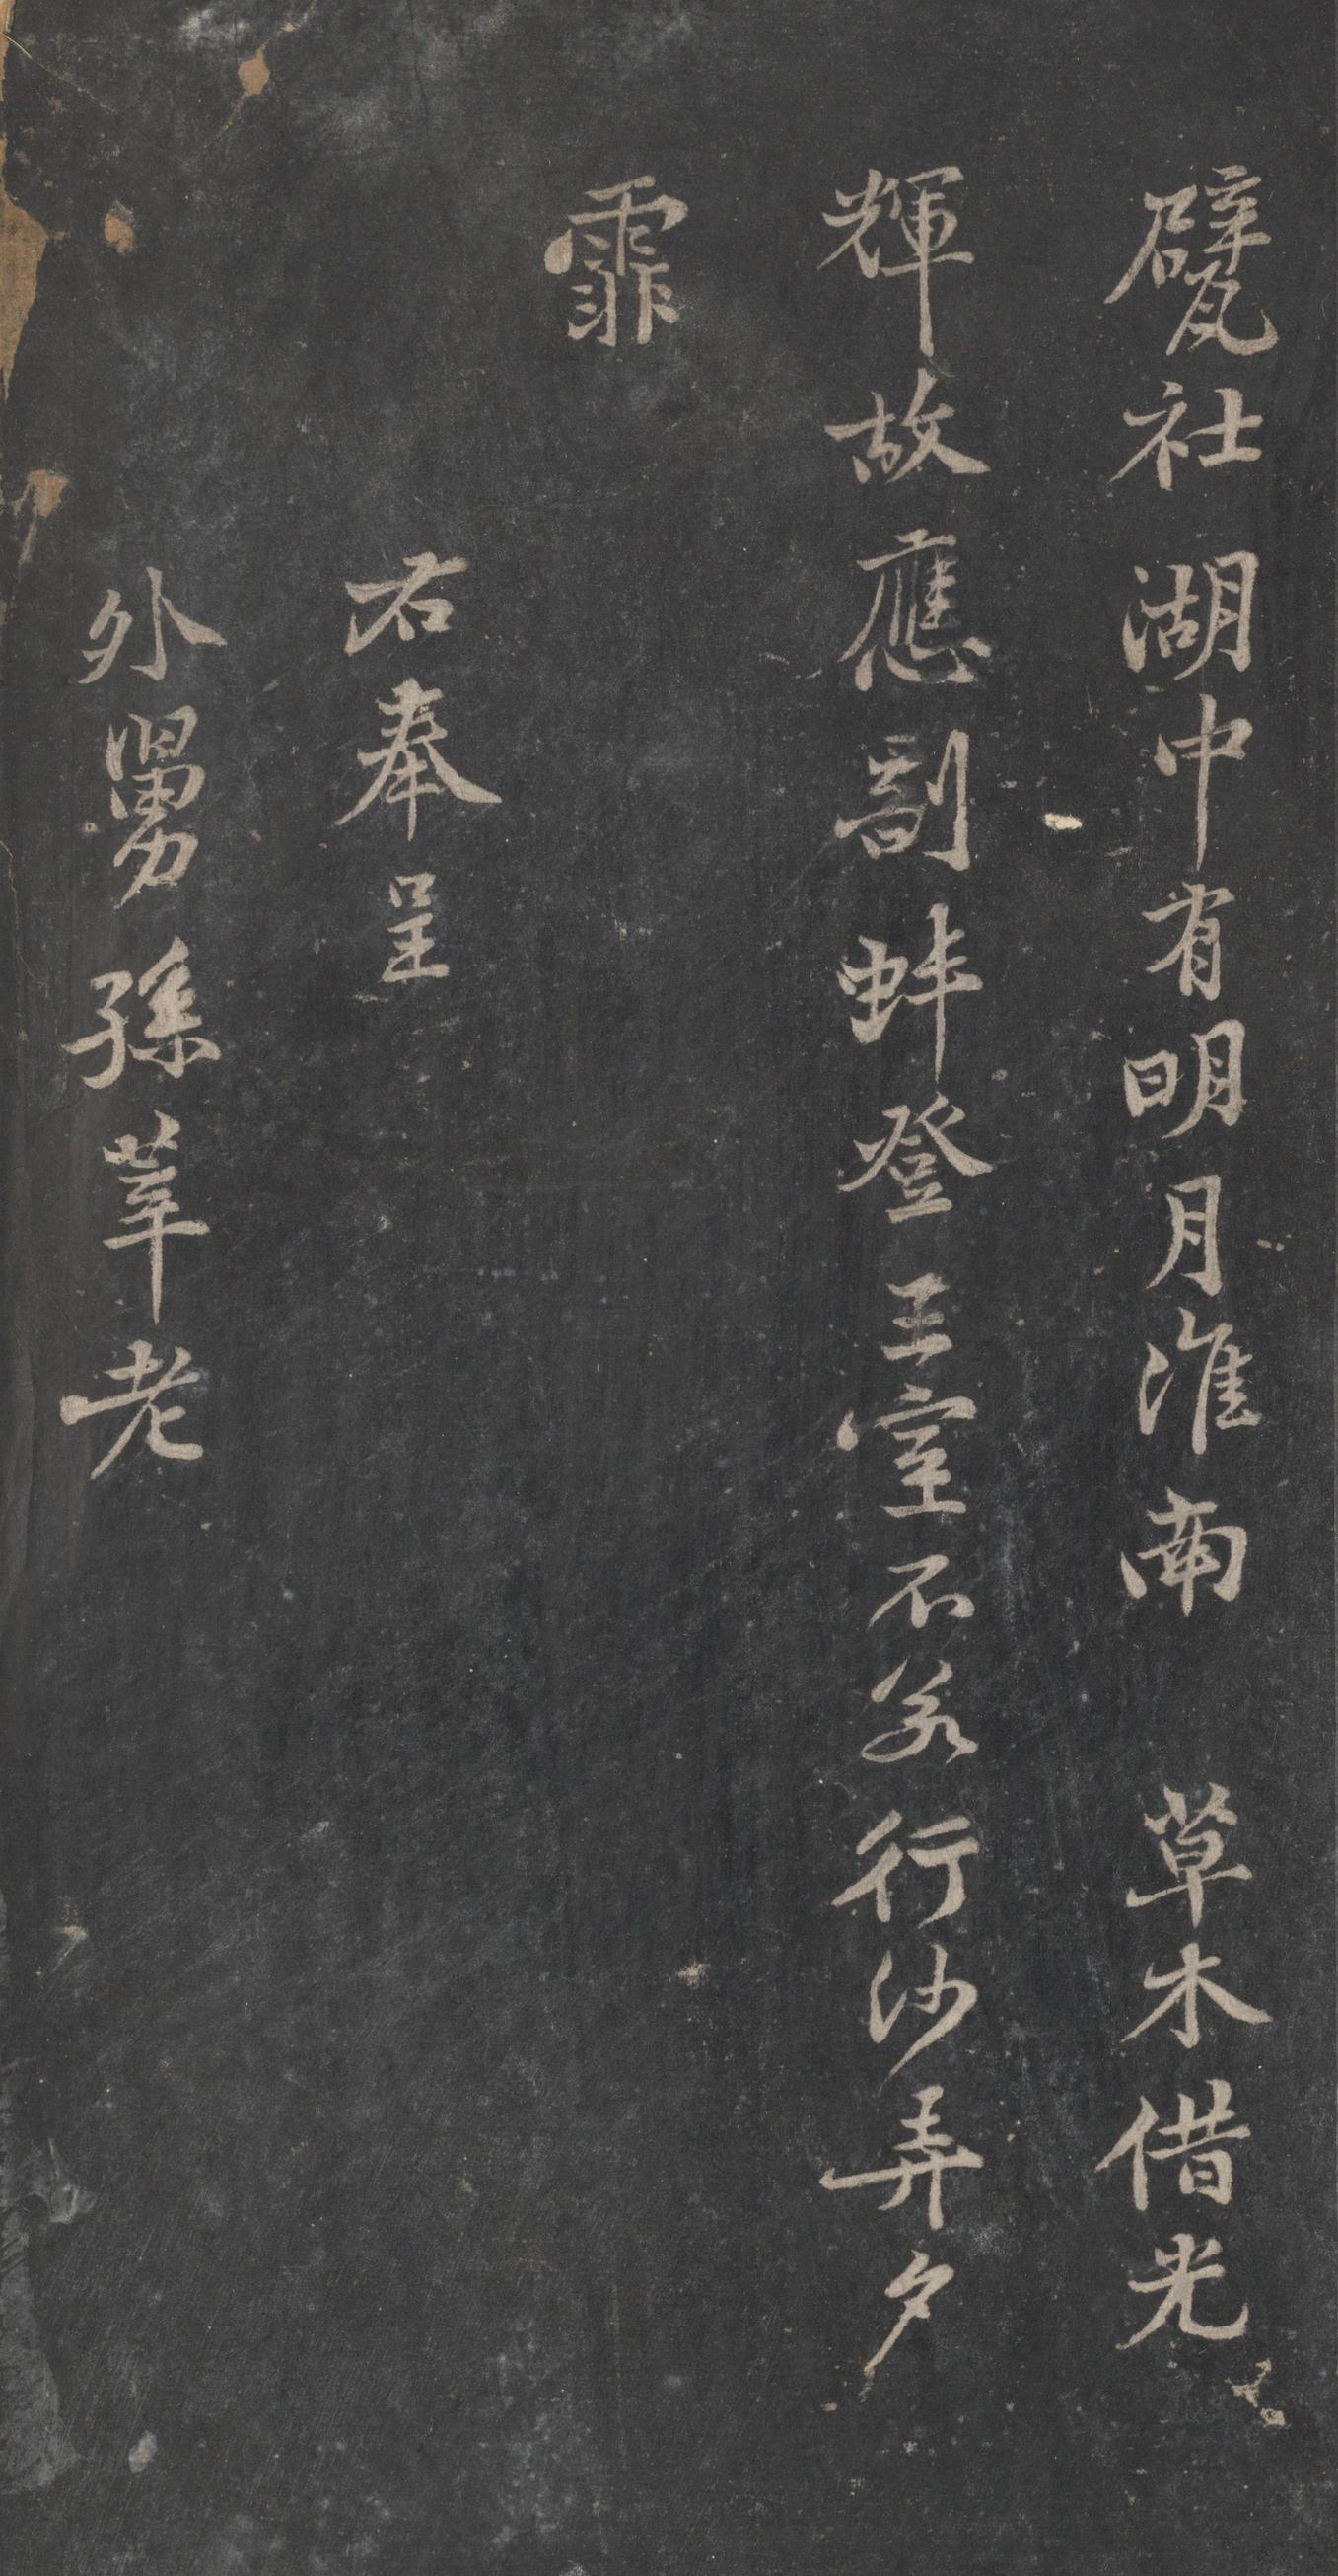 甓社湖中有明月淮南草木借光
輝故應剖蚌登王室不若行沙弄夕
霏
右奉呈
外舅孫莘老